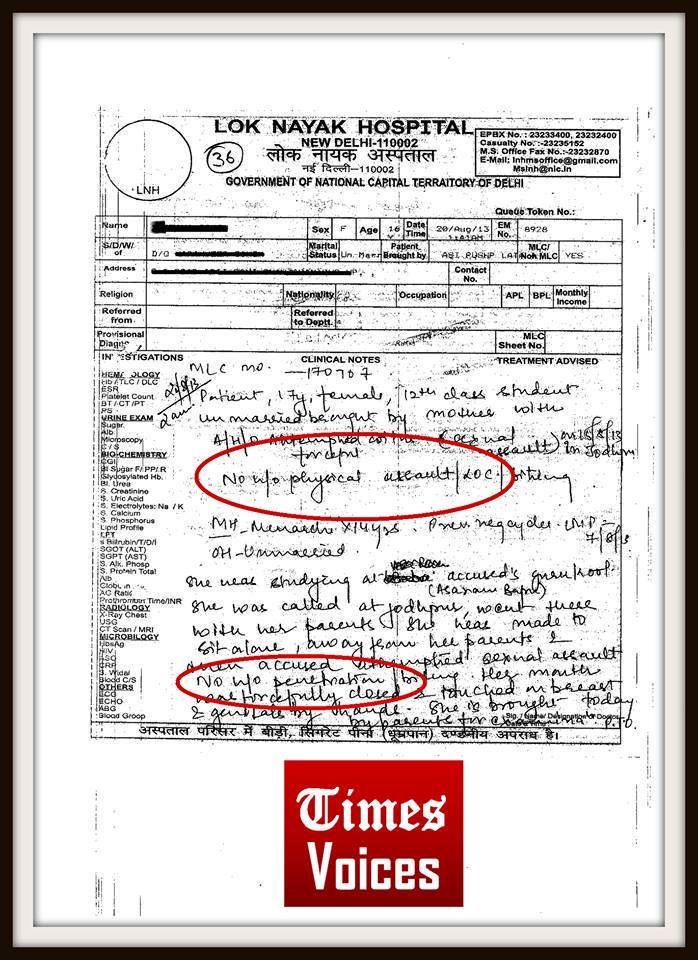 LOK NAYAK HOSPITAL
NEW DELHI-110002
लोक नायक अस्पताल
नई दिल्ली-110002
GOVERNMENT OF NATIONAL CAPITAL TERRAITORY OF DELHI
LNH
36
EPBX No. : 23233400, 23232400
Casualty No. :-23235152
M.S. Office Fax No.:-23232870
E-Mail: lnhmsoffice@gmail.com
Mslnh@nic.in
Queue Token No.:
Name Sex F Age 16 Y Date Time 20/Aug/13 EM No 8928
S/D/W/ of D/O Marital Status Un Marr Patient Brought by ASI PUSHP LAT MLC/ Non MLC YES
Address Contact No.
Religion Nationality Occupation APL BPL Monthly Income
Referred from Referred to Deptt.
Provisional MLC Sheet No.
CLINICAL NOTES
TREATMENT ADVISED
MLC no. — 170707
Patient, 17y, female, 12th class student
unmarried brought by mother with
A/H/O attempted sexual assault on 15/8/13 in Jodhpur
forceful
No h/o physical assault / LOC / biting
MH - Menarche x 14 yrs. Prev. reg. cycles LMP - 7/8/13
OH - Unmarried.
She was studying at accused's gurukool
(Asaram Bapu)
She was called at Jodhpur, went there
with her parents. She was made to
sit alone, away from her parents &
then accused attempted sexual assault
No h/o penetration / biting Her mouth
was forcefully closed & touched on breast
& genitals by hands. She is brought today
by parents for P.T.O.
HEMATOLOGY
Hb / TLC / DLC
ESR
Platelet Count
BT / CT / PT
PS
URINE EXAM
Sugar
Alb
Microscopy
C / S
BIO-CHEMISTRY
Bl Sugar F/ PP/ R
Glycosylated Hb.
Bl. Urea
S. Creatinine
S. Uric Acid
S. Electrolytes: Na / K
S. Calcium
S. Phosphorus
Lipid Profile
LFT
s Bilirubin/T/D/I
SGOT (ALT)
SGPT (AST)
S. Alk. Phosp
S. Protein Total
Alb
AG Ratio
Prothrombin Time/INR
RADIOLOGY
X-Ray Chest
USG
CT Scan / MRI
MICROBIOLOGY
HbsAg
HIV
CRP
S. Widal
Blood C/S
OTHERS
ECG
ECHO
ABG
Blood Group
अस्पताल परिसर में बीड़ी, सिगरेट पीना (धूम्रपान) दण्डनीय अपराध है।
Times
Voices